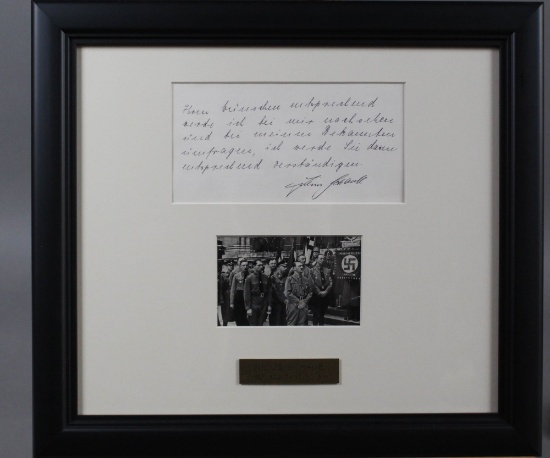 Ihren Wünschen entsprechend
werde ich bei mir nachsehen
und bei meinen Bekannten
umfragen, ich werde Sie dann
entsprechend verständigen.